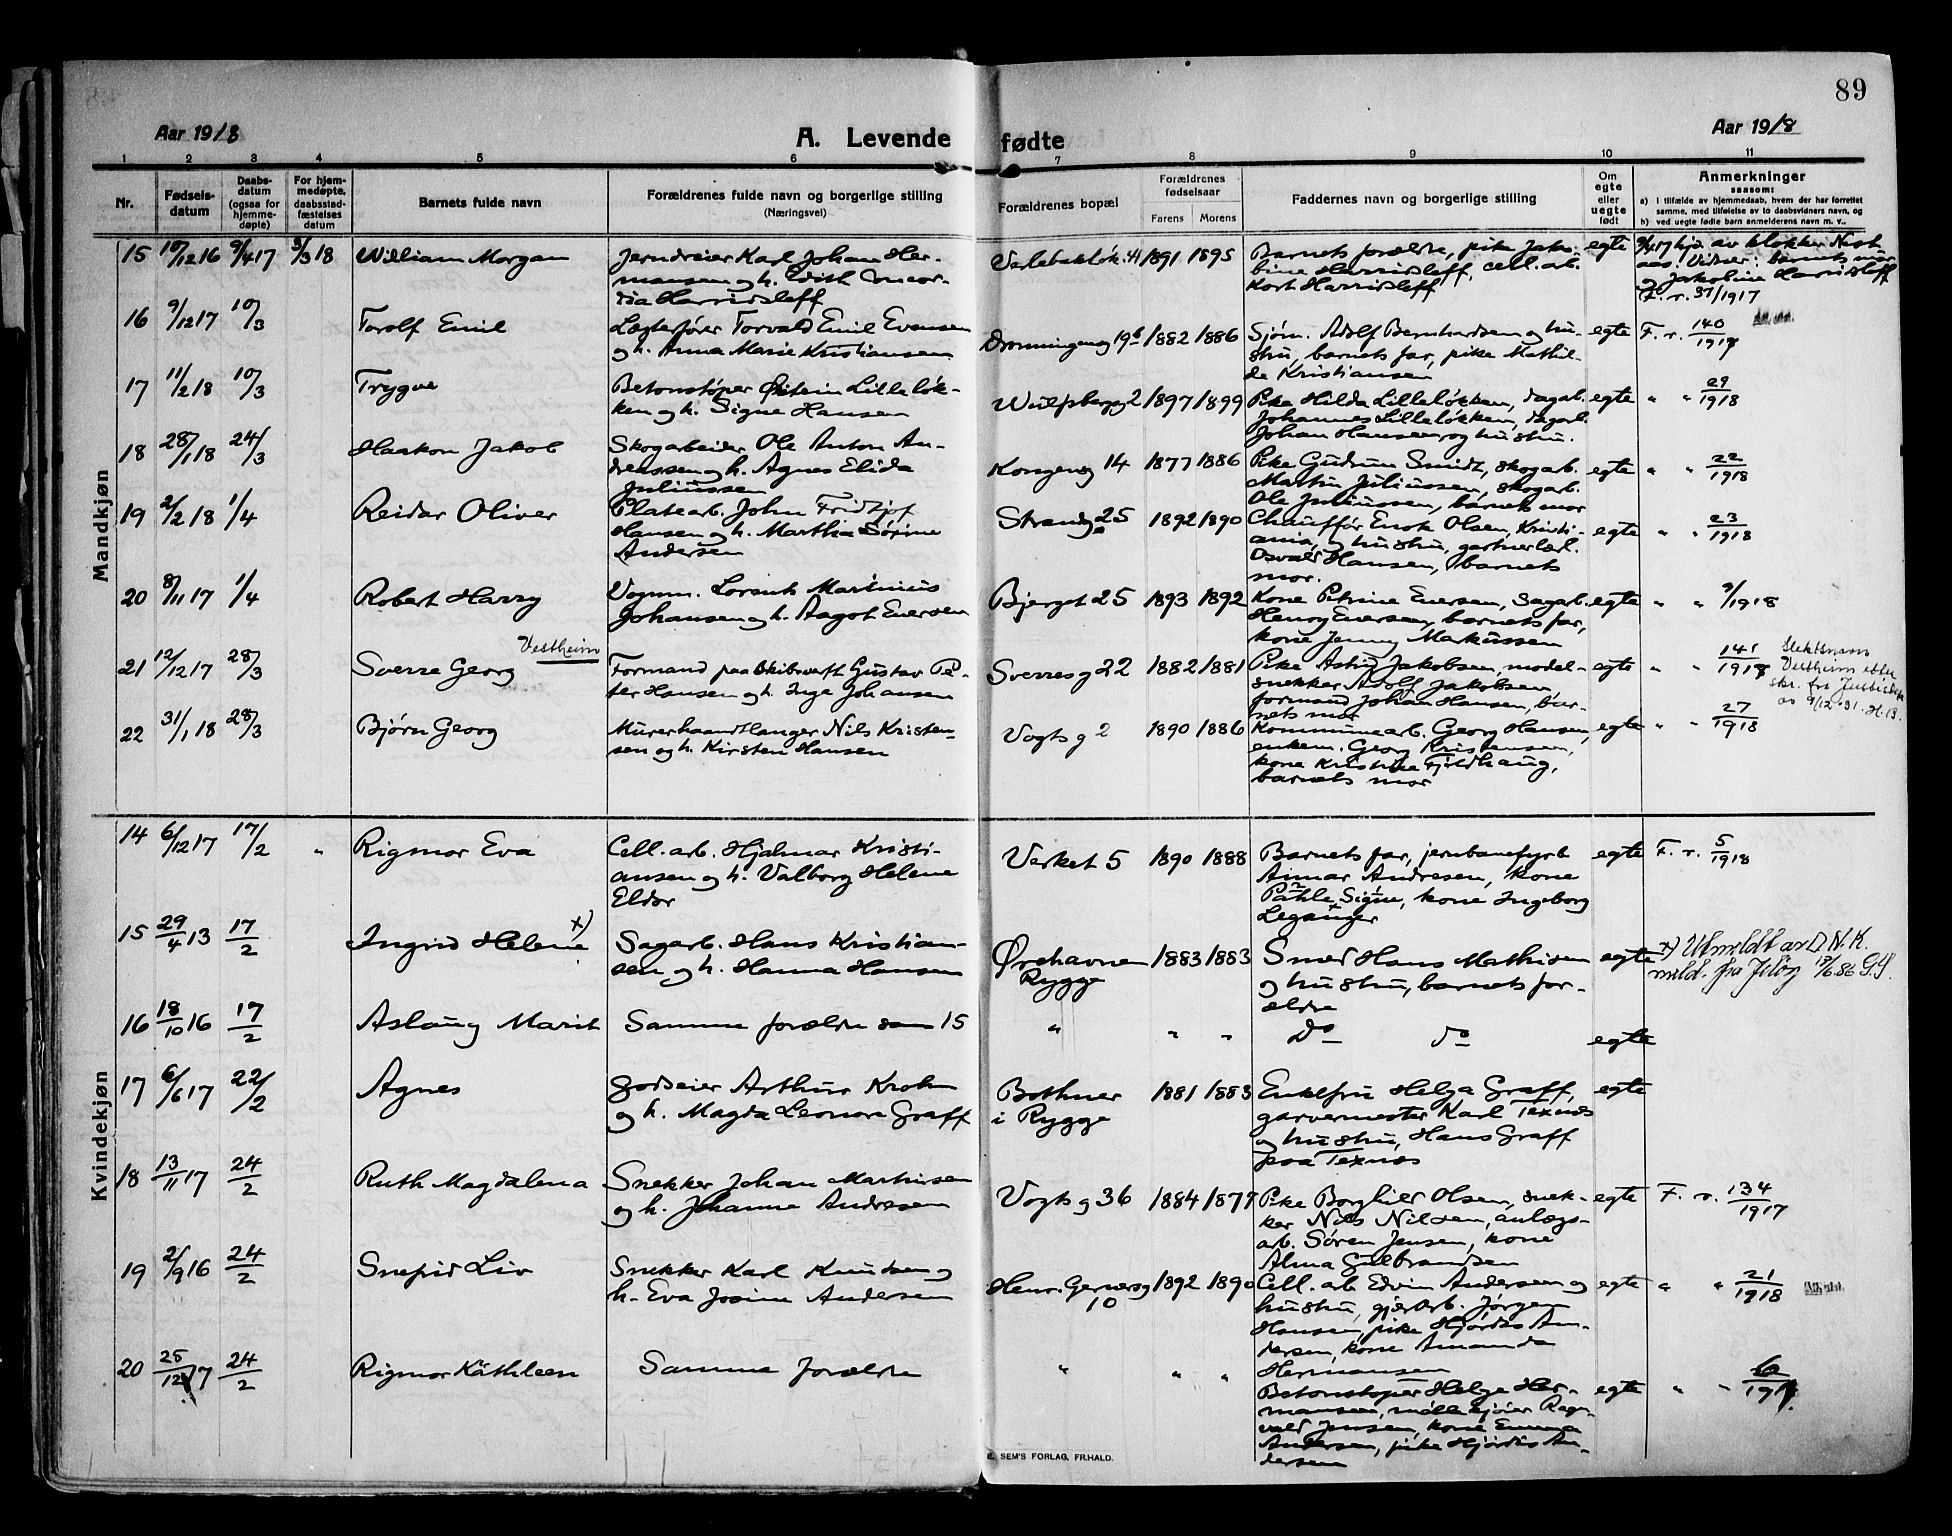 89
Aar 1918
A. Levende fødte
Aar 1918
1 2 3 4 5 6 7 8 9 10 11
Nr.
Fødsels-
datum
Daabs-
datum
(ogsaa for
hjemme-
døpte)
For hjem-
medøpte,
daabsstad-
fæstelses
datum
Barnets fulde navn
Forældrenes fulde navn og borgerlige stilling
(Næringsvei)
Forældrenes bopæl
Forældrenes
fødselsaar
Farens Morens
Faddernes navn og borgerlige stilling
Om
egte
eller
uegte
født
Anmerkninger
saasom:
a) I tilfælde av hjemmedaab, hvem der har forrettet
samme, med tilføielse av to daabsvidners navn, og
b) ved uegte fødte barn anmelderens navn m. v..
Mandkjøn
15 10/12 16 9/4 17 3/3 18 William Morgan
Jerndreier Karl Johan Her-
mansen og h. Edith
Harridsleff
1891 1895
Barnets forældre, pike Jako-
bine Harridsleff, cell. arb.
Harridsleff
egte
9/4 17 hjd. av klokker
Vidner: barnets mor
og Jakobine Harridsleff
F. r. 37/1917
16 9/12 17 10/3 Torolf Emil
Lægterfører Torvald Emil Evensen
og h. Anna Marie Kristiansen
Dronningensg 19b 1882 1886
Sjøm. Adolf Bernhardsen og hu-
stru, barnets far, pike Mathil-
de Kristiansen
egte F. r. 140/1917
17 11/2 18 10/3 Trygve
Betonstøper Øistein Lilleløk-
ken og h. Signe Hansen
Wulfsbergg 2 1897 1899
Pike Hilda Lilleløkken, dagarb.
Johannes Lilleløkken, dagarb.
Johan Hansen og hustru.
egte " " 29/1918
18 28/1 18 24/3 Haakon Jakob
Skogarbeider Ole Anton An-
dreassen og h. Agnes Elida
Juliussen
Kongensg 14 1877 1886
Pike Gudrun Smidt, skogarb.
Martin Juliussen, skogarb.
Ole Juliussen, barnets mor
egte " " 22/1918
19 2/2 18 1/4 Reidar Oliver
Platearb. John Fridtjof
Hansen og h. Martha Sørine
Andersen
Strandg 25 1892 1890
Chauffør Enok Olsen, Kristi-
ania, og hustru, gartnerlærl.
Osvald Hansen, barnets
mor.
egte " " 23/1918
20 8/11 17 1/4 Robert Harry
Vognm. Lorentz Martinius
Johansen og h. Aagot Eversen
Bjerget 25 1893 1892
Kone Petrine Eversen, sagarb.
Henry Eversen, barnets far,
kone Jenny Markussen
egte " " 9/1918
21 12/12 17 28/3 Sverre Georg Vestheim
Formand paa skibsverft Gustav Pe-
ter Hansen og h. Inga Johansen
Sverresg 22 1882 1881
Pike Astrid Jakobsen, model-
snekker Adolf Jakobsen
formand Johan Hansen, bar-
nets mor
egte " " 141/1917
Slektsnavn
Vestheim efter
skr. fra Justisdep.
av 9/12 31. H.B.
22 31/1 18 28/3 Bjørn Georg
Murerhaandlanger Nils Kristen-
sen og h. Kirsten Hansen
Vogtsg 2 1890 1886
Kommunearb. Georg Hansen,
enkem. Georg Kristensen,
kone Kristine Fjeldhaug,
barnets mor
egte " " 27/1918
Kvindekjøn
14 6/12 17 17/2 " Rigmor Eva
Cell. arb. Hjalmar Kristi-
ansen og h. Valborg Helene
Eldor
Verket 5 1890 1888
Barnets far, jernbanefyrb
Ainar Andresen, kone
Signe, kone Ingeborg
Leganger
egte F. r. 5/1918
15 29/4 13 17/2 Ingrid Helene x)
Sagarb. Hans Kristian-
sen og h. Hanna Hansen
Ørehavnen
Rygge
1883 1883
Smed Hans Mathisen
og hustru, barnets for-
ældre
egte
x) Utmeldt av D.N.K.
meld. fra Jeløy 17/6.86 G.S.
16 18/10 16 17/2 Aslaug Marit Samme forældre som 15
" " " Do do egte
17 6/6 17 22/2 Agnes
Godseier Arthur Krohn
og h. Magda Leonora Graff
Bothner
i Rygge
1881 1883
Enkefru Helga Graff,
garvermester Karl Texnæs
og hustru, Hans Graff
paa Texnæs
egte
18 13/11 17 24/2 Ruth Magdalena
Snekker Johan Martinsen
og h. Johanne Andresen
Vogtsg 36 1884 1877
Pike Borghild Olsen, snek-
ker Nils Nilsen, anlægs-
arb. Søren Jensen, kone
Alma Gulbrandsen
egte F. r. 134/1917
19 2/9 16 24/2 Snefrid Liv
Snekker Karl Knudsen og
h. Eva Josine Andersen
Henr. Gernersg
10
1892 1890
Cell. arb Edvin Andersen og
hustru, gjørtl. arb. Jørgen
Hansen, pike Hjørdis An-
dersen, kone Amanda
Hermansen
egte " " 21/1918
20 25/12 17 24/2 Rigmor Käthleen Samme forældre
" " "
Betonstøper Helge Her-
mansen, møllekjører Rag-
vald Jensen, kone Emma
Andersen, pike Hjørdis An-
dersen
egte " "
E. SEM'S FORLAG, FR.HALD.